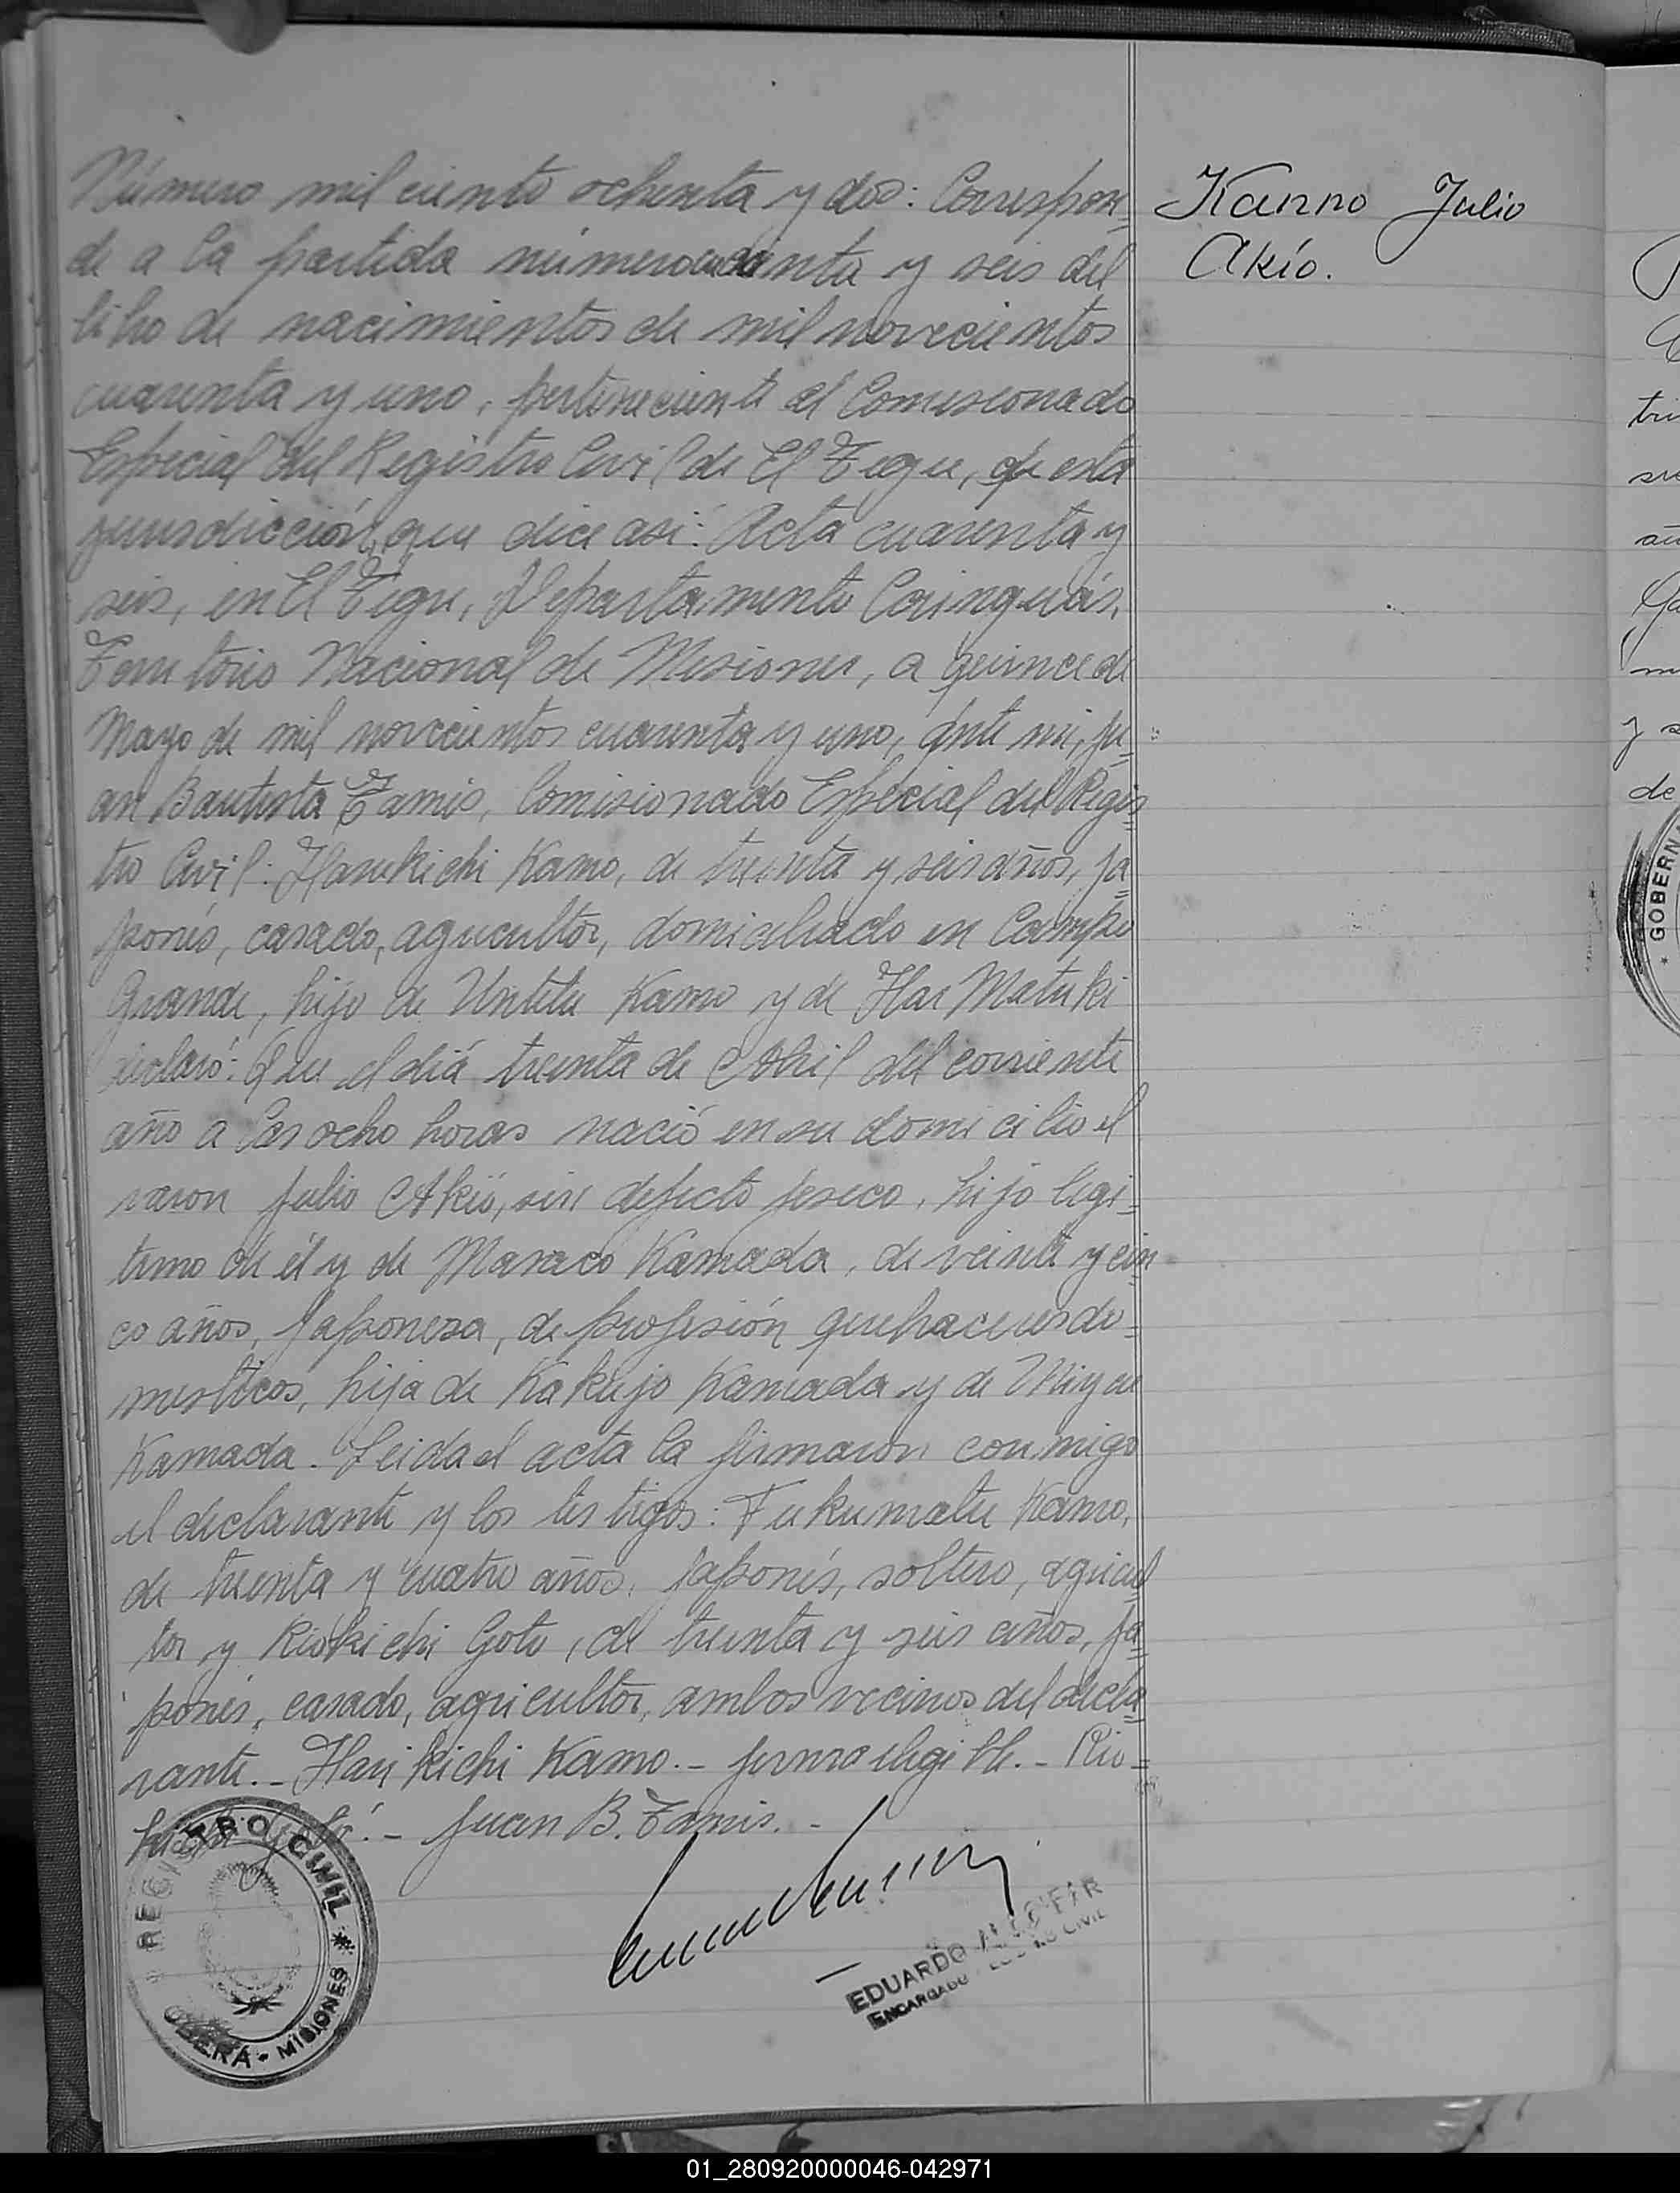 Número mil ciento ochenta y dos: Correspon-
de a la partida número cuarenta y seis del
libro de nacimientos de mil novecientos
cuarenta y uno, perteneciente al Comisionado
Especial del Registro Civil de El Tigre, de esta
jurisdicción, que dice asi: Acta cuarenta y
seis, en El Tigre, Departamento Cainguás,
Territorio Nacional de Misiones, a quince de
Mayo de mil novecientos cuarenta y uno, ante mi, Ju-
an Bautista Tamis, Comisionado Especial del Regis-
tro Civil: Harukichi Kamo, de treinta y seis años, ja-
ponés, casado, agricultor, domiciliado en Campo
Grande, hijo de Untitu Kamo y de Har Matuki
declaró: Que el día treinta de Abril del corriente
año a las ocho horas nació en su domicilio el
varon Julio Akió, sin defecto fisico, hijo legi-
timo de él y de Masaco Kamada, de veinte y cin-
co años, Japonesa, de profesión quehaceres do-
mesticos, hija de Kakujo Kamada y de Miyeu
Kamada. Leida el acta la firmaron conmigo
el declarante y los testigos: Fukumatu Kamo,
de treinta y cuatro años, Japonés, soltero, agricul-
tor y Kiokichi Goto, de treinta y seis años, ja-
ponés, casado, agricultor, ambos vecinos del decla-
rante. - Harikichi Kamo. - firma ilegible. - Kio-
kichi Goto. - Juan B. Tamis. -
Kanno Julio
Akío.
REGISTRO CIVIL
OBERÁ - MISIONES
EDUARDO
ENCARGADO CIVIL
tri
y s
de
GOBERN
01_280920000046-042971